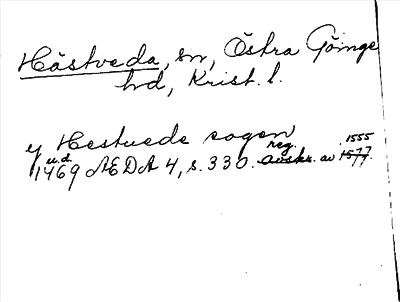 Hästveda, sn, Östra Göinge
hd, Krist. l.
y Hestuede sogen
u.d. reg. 1555
1469 AEDA 4, s. 330. avskr. av 1577.